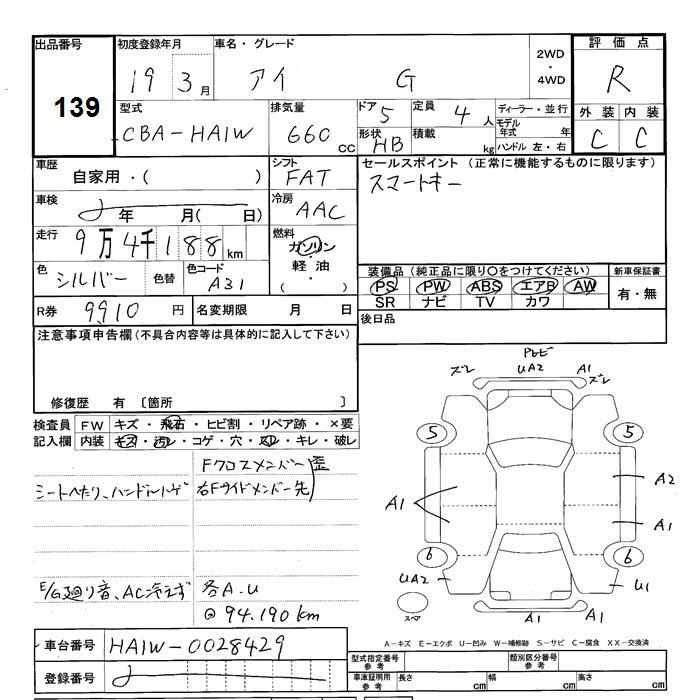 出品番号 初度登録年月 車名・グレード 2WD・4WD 評価点
139 19 3月 アイ G R
型式 排気量 ドア 5 定員 4人 ディーラー・並行 外装 内装
CBA-HA1W 660cc 形状 HB 積載 kg モデル年式 年 C C
ハンドル 左・右
車歴 シフト セールスポイント (正常に機能するものに限ります)
自家用・( ) FAT スマートキー
車検 年 月( 日) 冷房 AAC
走行 9万4千188km 燃料 ガソリン・軽油・( )
色 シルバー 色替 色コード A31
装備品 (純正品に限り○をつけてください) 新車保証書
PS PW ABS エアB AW 有・無
SR ナビ TV カワ
R券 9910円 名変期限 月 日 後日品
注意事項申告欄(不具合内容等は具体的に記入して下さい)
修復歴 有 〔箇所 〕
検査員 FW キズ・飛石・ヒビ割・リペア跡・×要
記入欄 内装 キズ・汚レ・コゲ・穴・スレ・キレ・破レ
Fクロスメンバー 歪
シートへたり、ハンドルトゲ 右Fサイドメンバー先
E/G廻り音、AC冷えず 各A.U
94.190km
車台番号 HA1W-0028429
登録番号
ズレ UA2 A1 ズレ
5 5
A1 A2
A1
6 6
UA2 U1
スペア A1 A1
A-キズ E-エクボ U-凹み W-補修跡 S-サビ C-腐食 XX-交換済
型式指定番号 参考 類別区分番号 参考
車庫証明用 参考 長さ cm 幅 cm 高さ cm